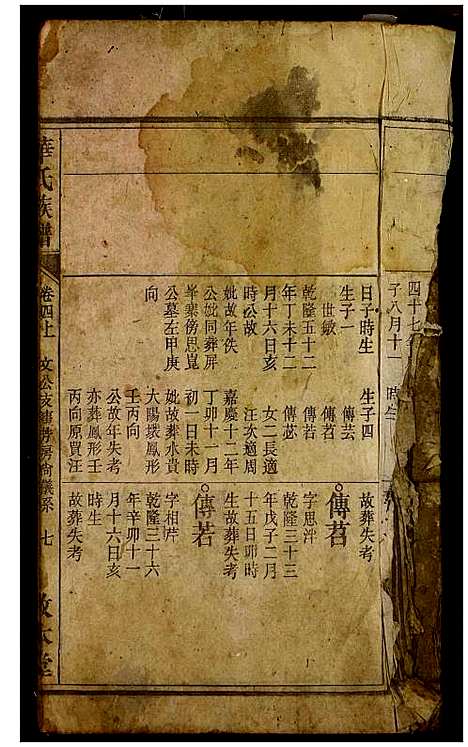 四十七年
子八月十一
時生
日子時生
生子一
世敏
乾隆五十二
年丁未十二
月十六日亥
時公故
妣故年佚
公妣同葬屏
峯寨傍思崑
公墓左甲庚
向
生子四
傳芸
傳茗
傳若
傳苾
女二長適
汪次適周
嘉慶十二年
丁卯十一月
初一日未時
妣故葬水貴
大陽墩鳳形
壬丙向
公故年失考
亦葬鳳形壬
丙向原買汪
故葬失考
傳茗
字思泮
乾隆三十三
年戊子二月
十五日卯時
生故葬失考
傳若
字相芹
乾隆三十六
年辛卯十一
月十六日亥
時生
故葬失考
氏族譜
卷四上
文公支
房尚義系
七
堂